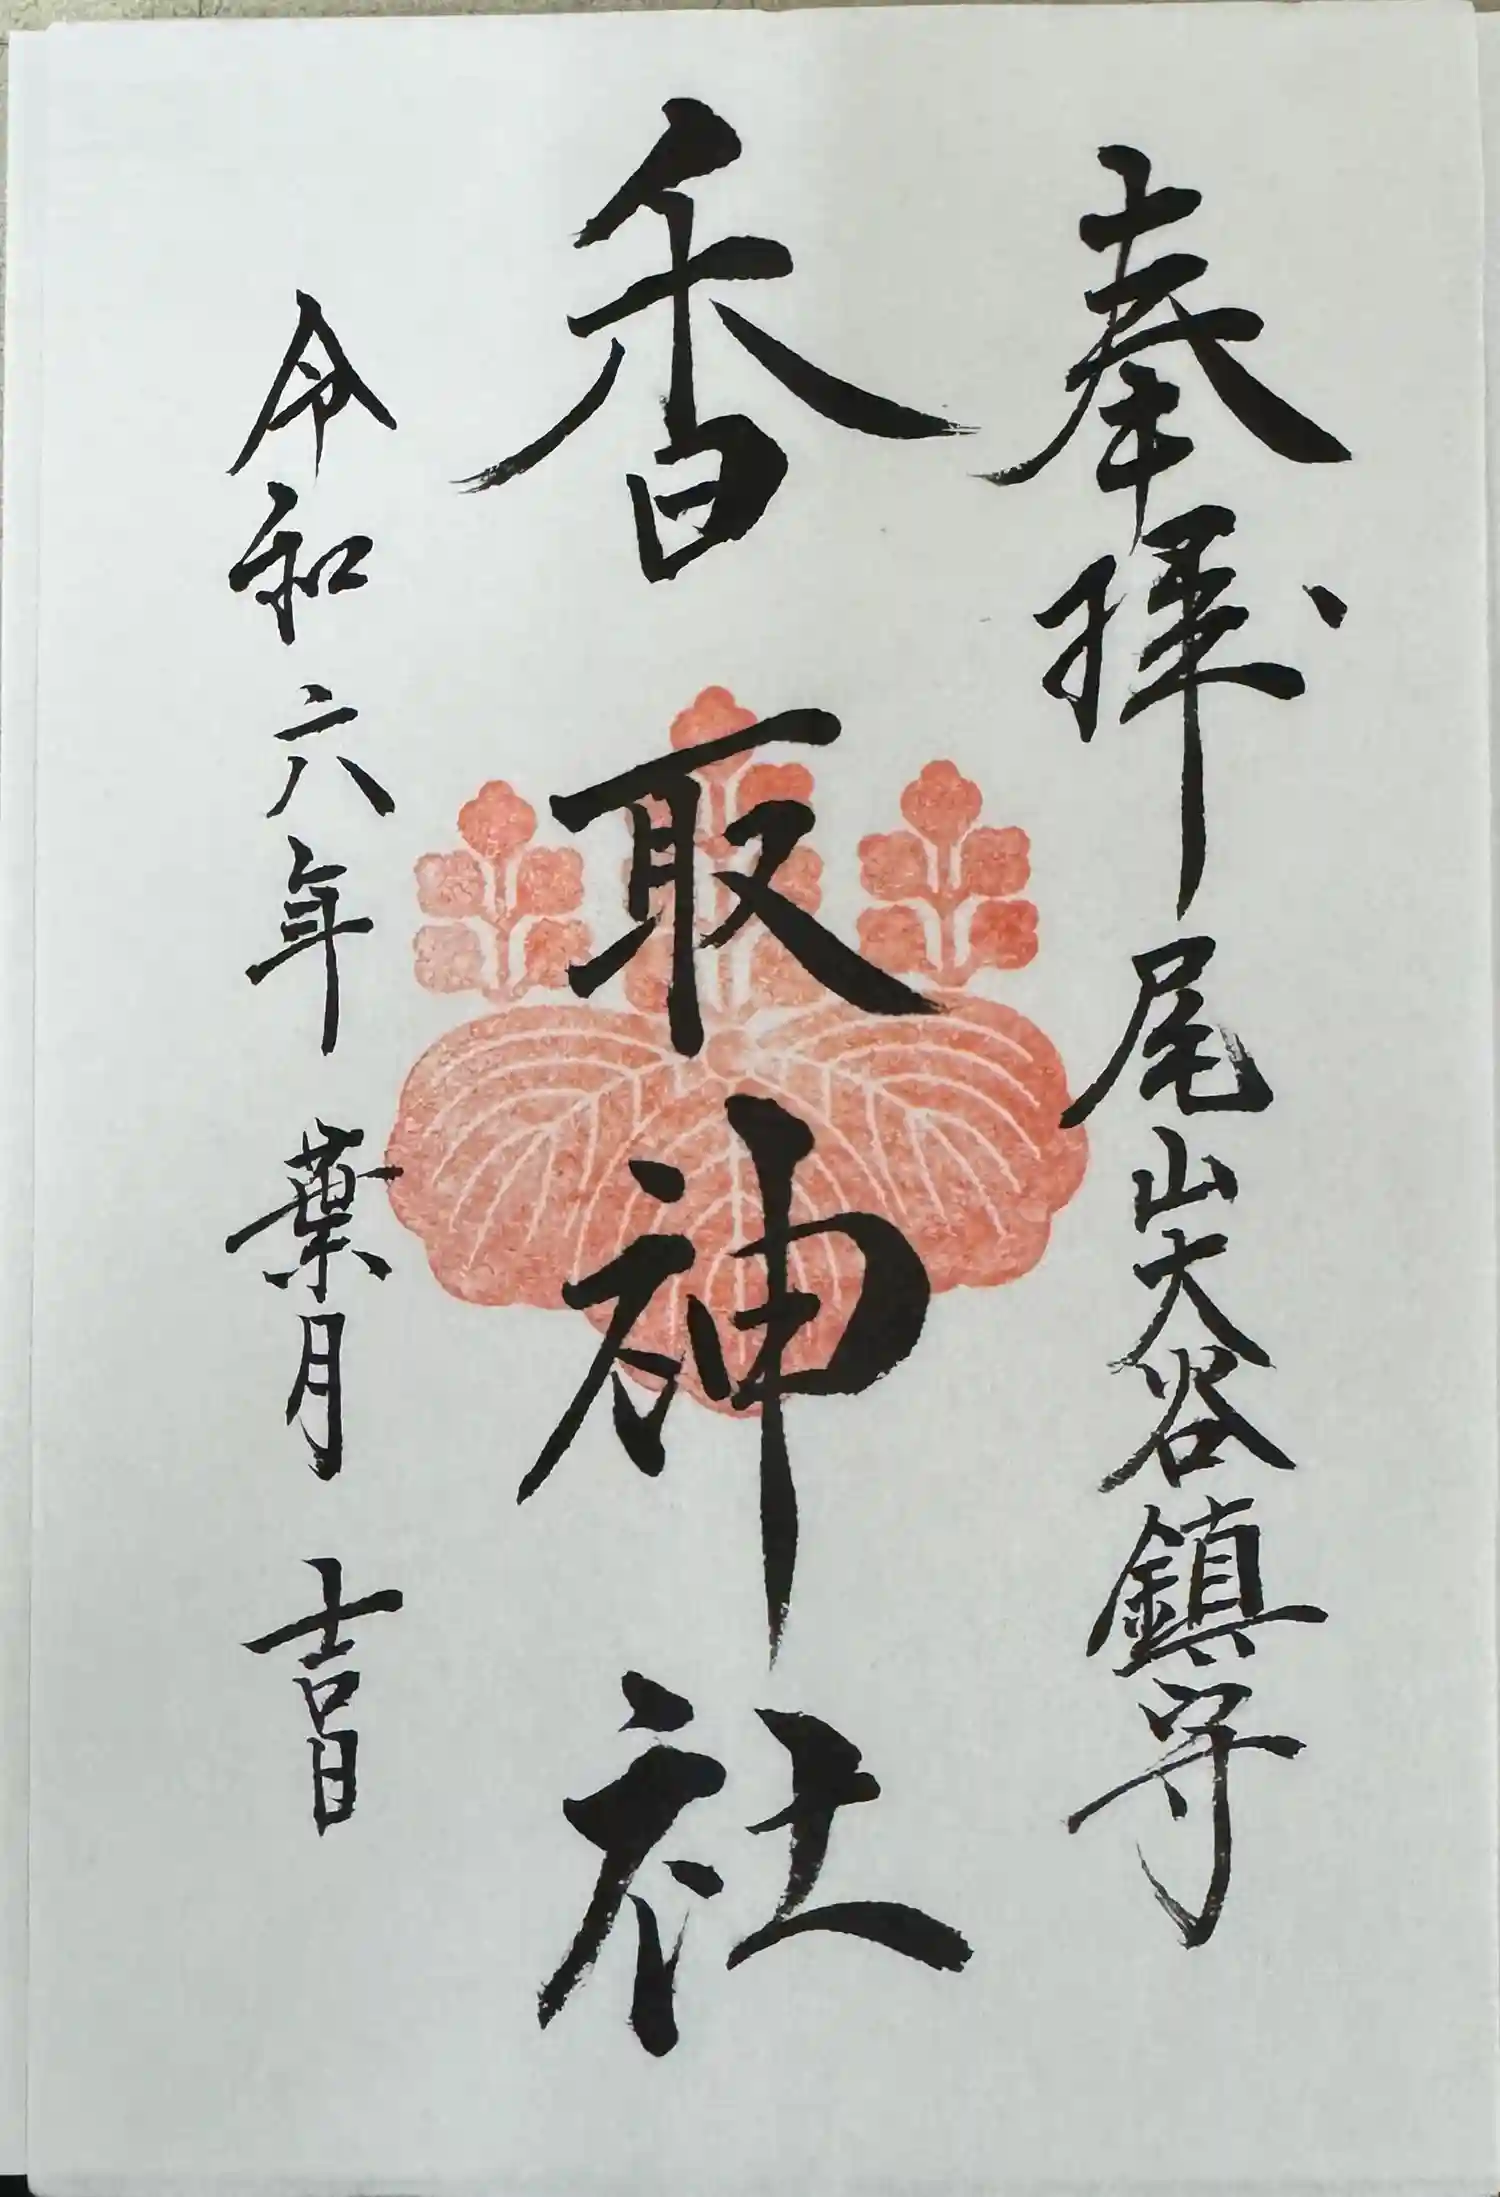 奉拝 尾山大谷鎮守
香取神社
令和六年 葉月 吉日